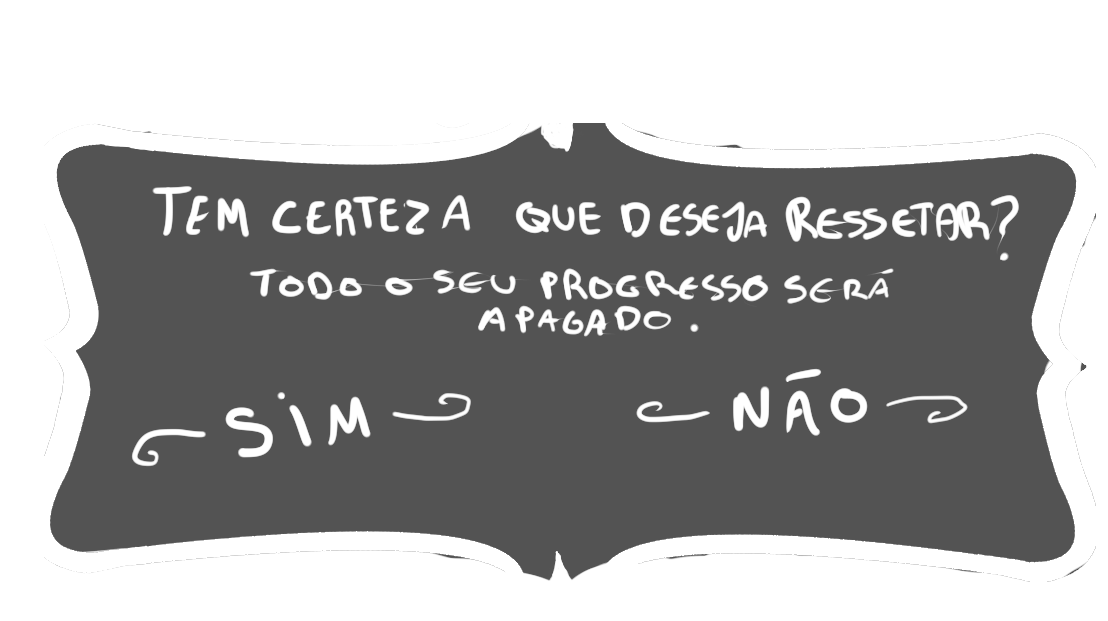 TEM CERTEZA QUE DESEJA RESSETAR?
TODO O SEU PROGRESSO SERÁ
APAGADO.
SIM NÃO